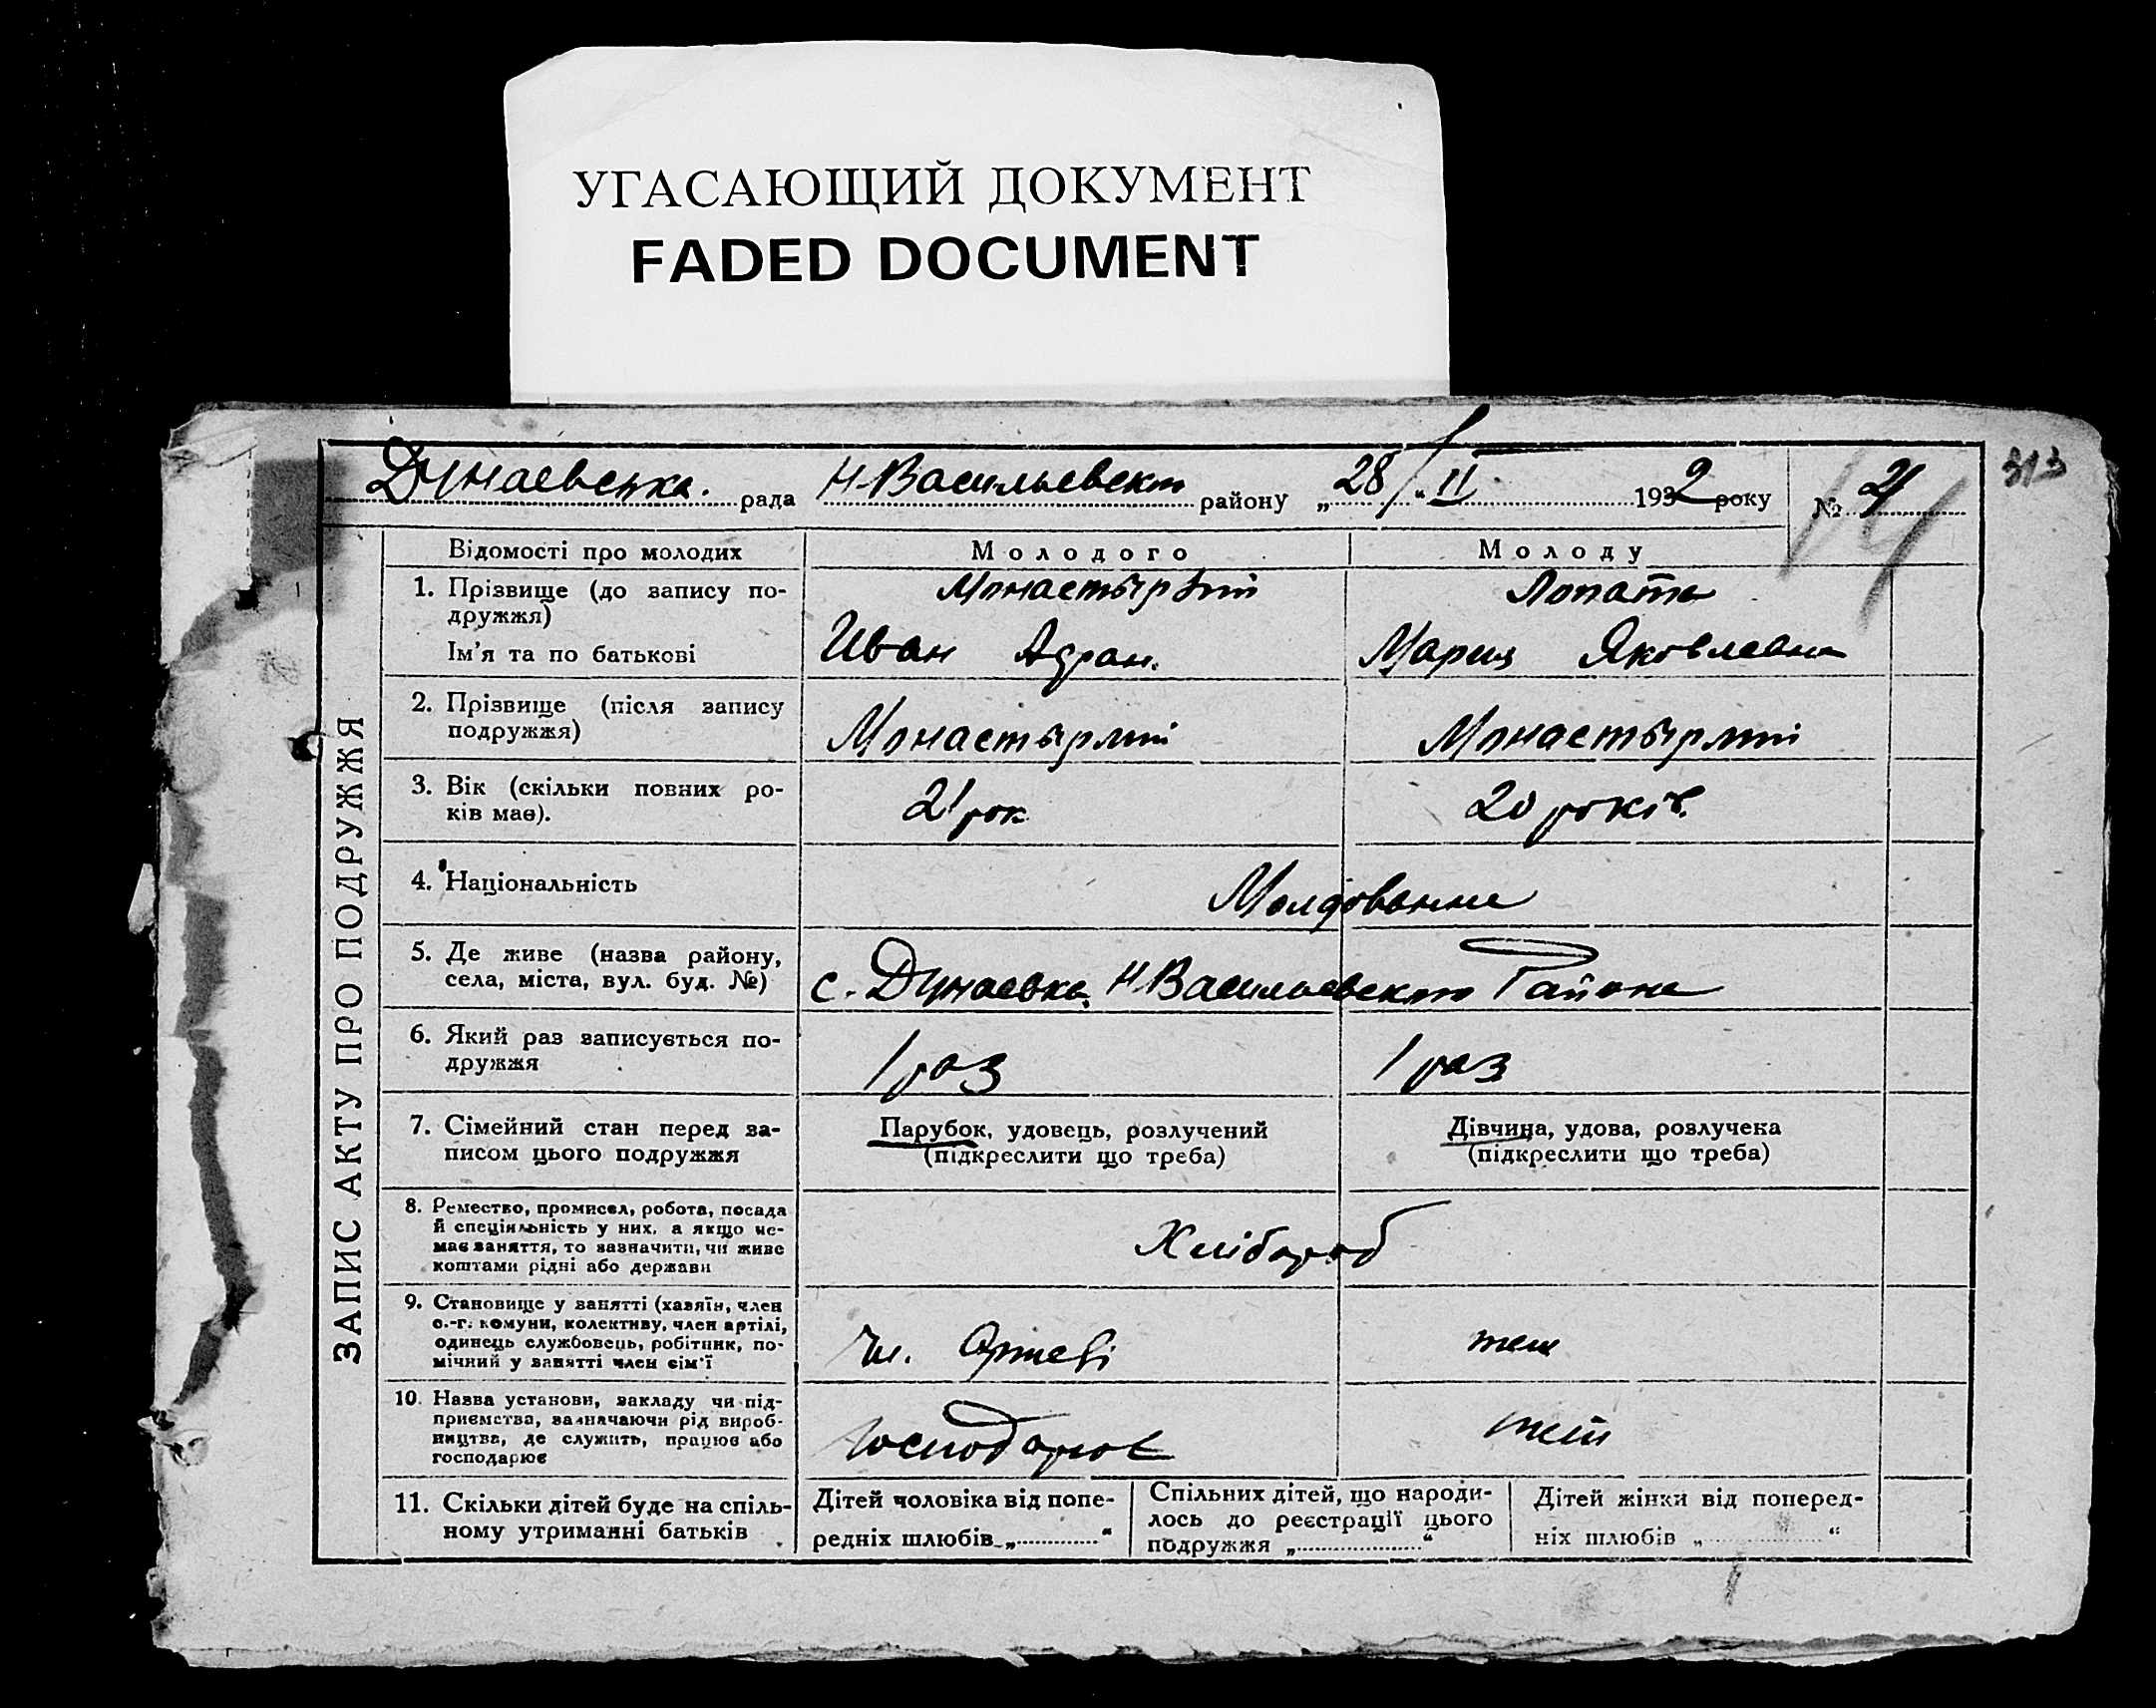 УГАСАЮЩИЙ ДОКУМЕНТ
FADED DOCUMENT
313
Дунаевська. рада Н-Васильевськ району „28/" II 1932 року № 21
ЗАПИС АКТУ ПРО ПОДРУЖЖЯ
Відомості про молодих Молодого Молоду
1. Прізвище (до запису по-
дружжя)
Лопата
Ім'я та по батькові Иван Адриан. Мария Яковлевна
2. Прізвище (після запису
подружжя)
3. Вік (скільки повних ро-
ків має).
21 рок 20 років.
4. Національність Молдованне
5. Де живе (назва району,
села, міста, вул. буд. №)
с. Дунаевка, Н-Васильевского Района
6. Який раз записується по-
дружжя
1 раз 1 раз
7. Сімейний стан перед за-
писом цього подружжя
Парубок, удовець, розлучений
(підкреслити що треба)
Дівчина, удова, розлучена
(підкреслити що треба)
8. Ремество, промисел, робота, посада
й спеціяльність у них, а якщо не-
має заняття, то зазначити, чи живе
коштами рідні або держави
Хлібороб
9. Становище у занятті (хазяїн, член
с.-г. комуни, колективу, член артілі,
одинець службовець, робітник, по-
мічний у занятті член сім'ї
Чл. Артелі теж
10. Назва установи, закладу чи під-
приємства, зазначаючи рід вироб-
ництва, де служить, працює або
господарює
Господарює теж
11. Скільки дітей буде на спіль-
ному утриманні батьків
Дітей чоловіка від попе-
редніх шлюбів „ "
Спільних дітей, що народи-
лось до реєстрації цього
подружжя „ "
Дітей жінки від поперед-
ніх шлюбів „ "